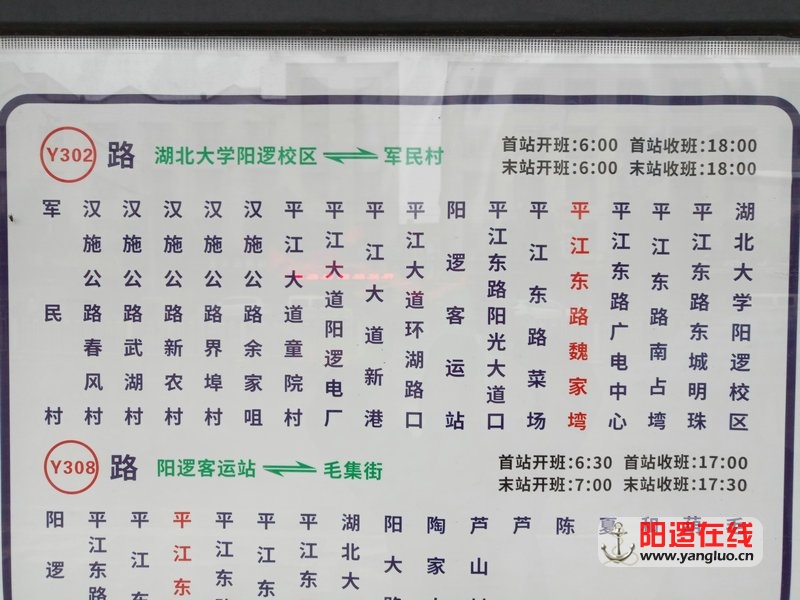 Y302 路 湖北大学阳逻校区 军民村
首站开班:6:00 首站收班:18:00
末站开班:6:00 末站收班:18:00
军民村
汉施公路春风村
汉施公路武湖村
汉施公路新农村
汉施公路界埠村
汉施公路余家咀
平江大道童院村
平江大道阳逻电厂
平江大道新港
平江大道环湖路口
阳逻客运站
平江东路阳光大道口
平江东路菜场
平江东路魏家塆
平江东路广电中心
平江东路南占塆
平江东路东城明珠
湖北大学阳逻校区
Y308 路 阳逻客运站 毛集街
首站开班:6:30 首站收班:17:00
末站开班:7:00 末站收班:17:30
阳逻
平江东路
平江东
平江东
平江东
平江东
平江东
湖北大
阳大
陶家
芦山
芦
陈
夏
阳逻在线
www.yangluo.cn